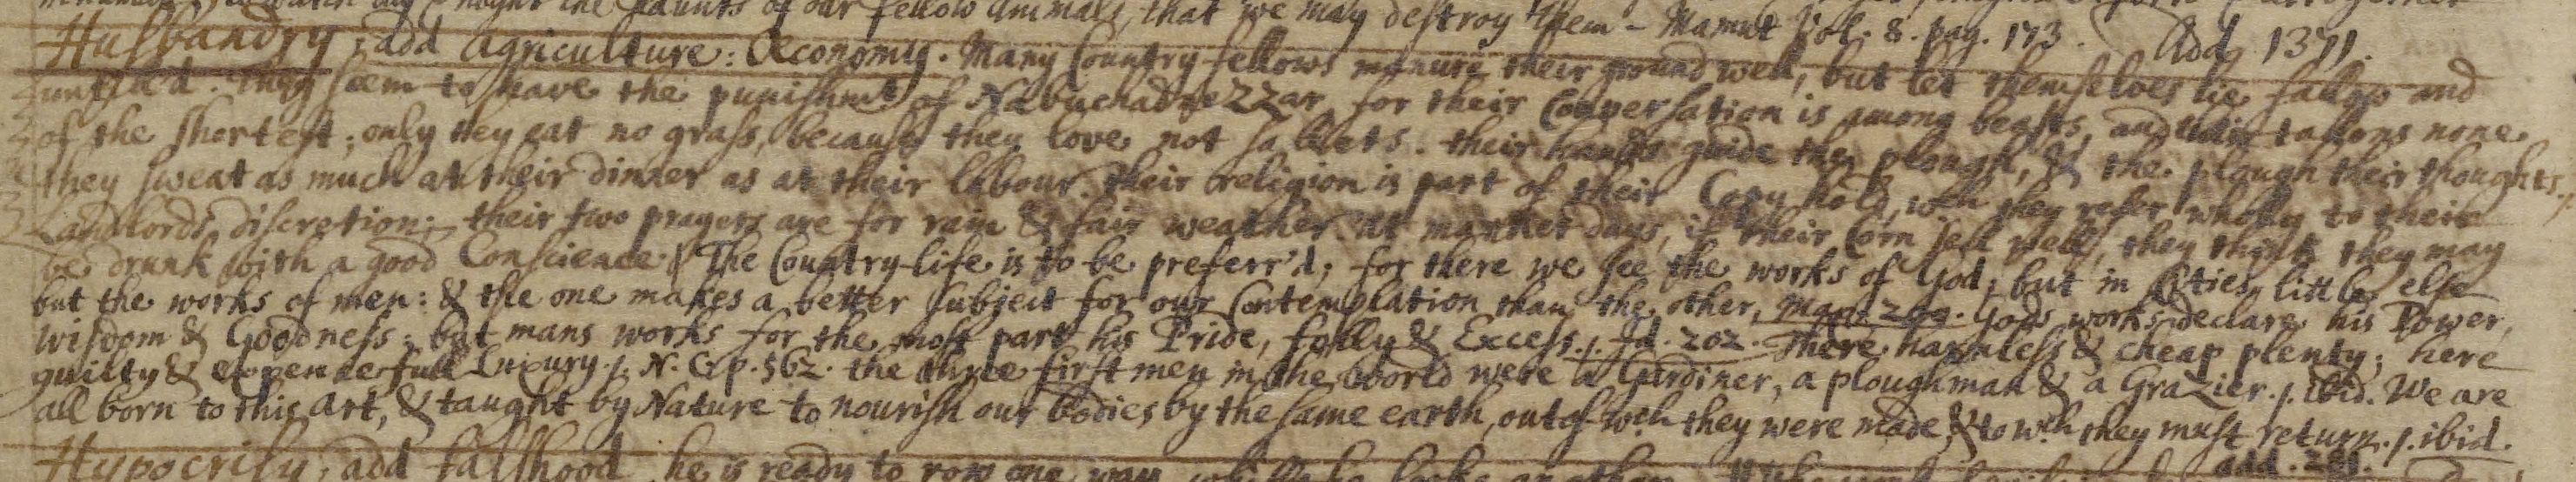 to watch day & night the haunts of our fellow Animals, that we may destroy them - Mamut Vol. 8. pag. 173. Add 1371.
Husbandry; add Agriculture: Œconomy. Many Country fellows manure their ground well, but let themselves lie fallow and
untilled. They seem to have the punishmt of Nabuchadnezzar for their Conversation is among beasts, and their tallons none
of the shortest; only they eat no grass, because they love not sallets. their hands guide the plough, & the plough their thoughts.
they sweat as much at their dinner as at their labour. their religion is part of their Copy hold, wch they refer wholly to their
Landlords discretion; their two prayers are for rain & fair weather. At market days, if their Corn sell well, they think they may
be drunk with a good Conscience. The Country-life is to be preferr'd; for there we see the works of God; but in Cities little else
but the works of men: & the one makes a better subject for our Contemplation than the other, Gods works declare his Power,
Wisdom & Goodness; but mans works for the most part his Pride, folly & Excess. /. Id. 202. There harmless & cheap plenty; here
guilty & expensefull Luxury. /. N. C. p. 562. the three first men in the World were a Gardiner, a ploughman & a Grazier. /. ibid. We are
all born to this Art, & taught by Nature to nourish our bodies by the same earth, out of wch they were made, & to wch they must return. /. ibid.
Hypocrisy; add falshood he is ready to row one way add. 281.